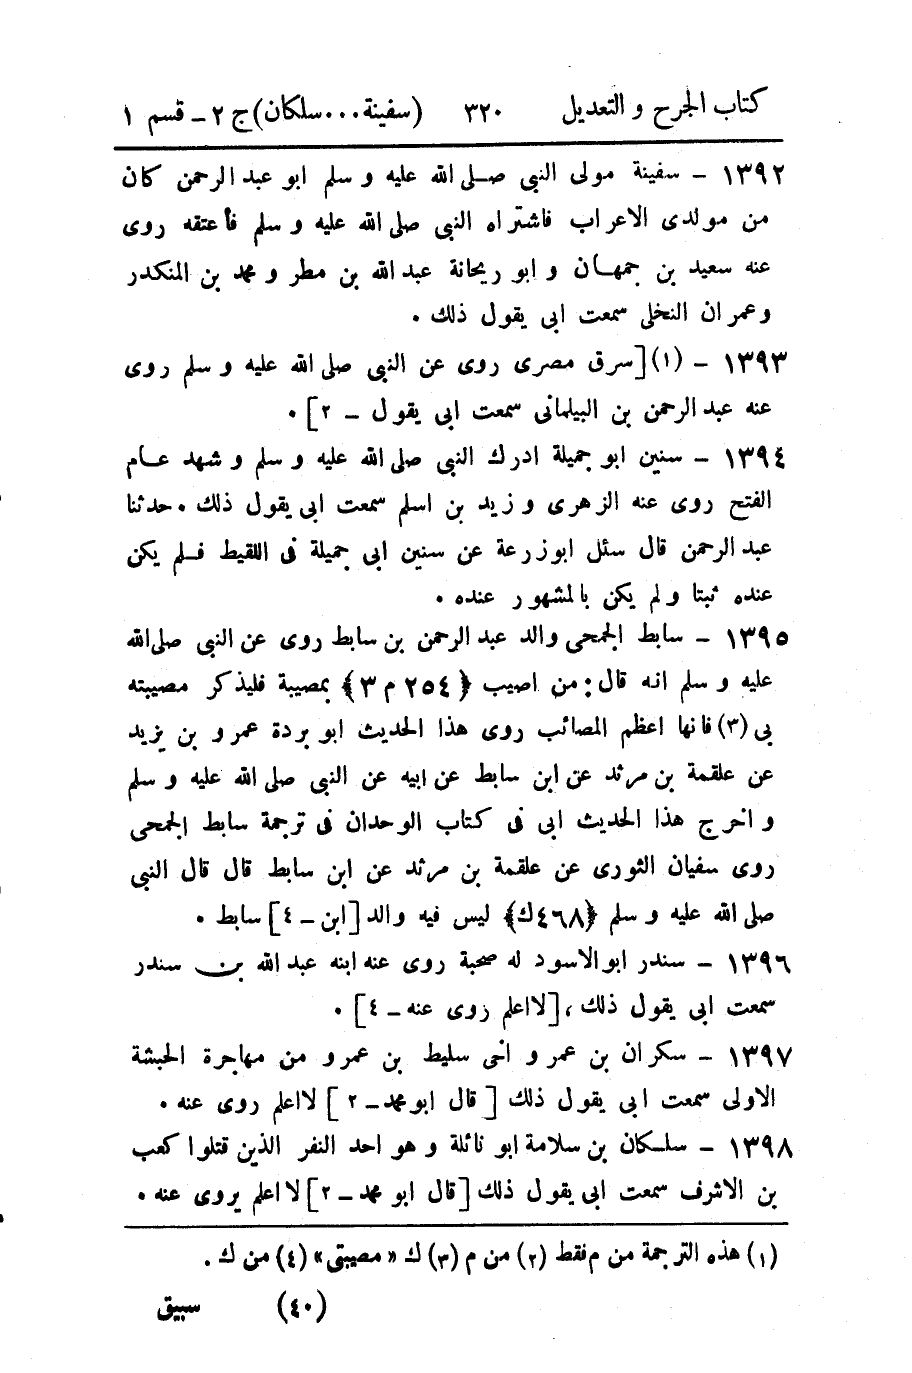 كتاب الجرح و التعديل ٣٢٠ (سفينة...سلكان) ج ٢ - قسم ١
١٣٩٢ - سفينة مولى النبى صلى الله عليه و سلم ابو عبد الرحمن كان
من مولدى الاعراب فاشتراه النبى صلى الله عليه و سلم فأعتقه روى
عنه سعيد بن جمهان و ابو ريحانة عبد الله بن مطر و محمد بن المنكدر
وعمران النخلى سمعت ابى يقول ذلك .
١٣٩٣ - (١) [سرق مصرى روى عن النبى صلى الله عليه و سلم روى
عنه عبد الرحمن بن البيلمانى سمعت ابى يقول - ٢] .
١٣٩٤ - سنين ابو جميلة ادرك النبى صلى الله عليه و سلم و شهد عام
الفتح روى عنه الزهرى و زيد بن اسلم سمعت ابى يقول ذلك . حدثنا
عبد الرحمن قال سئل ابوزرعة عن سنين ابى جميلة فى اللقيط فلم يكن
عنده ثبتا ولم يكن بالمشهور عنده .
١٣٩٥ - سابط الجمحى والد عبد الرحمن بن سابط روى عن النبى صلى الله
عليه و سلم انه قال: من اصيب ﴿٢٥٤ م ٣﴾ بمصيبة فليذكر مصيبته
بى (٣) فانها اعظم المصائب روى هذا الحديث ابو بردة عمرو بن يزيد
عن علقمة بن مرثد عن ابن سابط عن ابيه عن النبى صلى الله عليه و سلم
و اخرج هذا الحديث ابى فى كتاب الوحدان فى ترجمة سابط الجمحى
روى سفيان الثورى عن علقمة بن مرثد عن ابن سابط قال قال النبى
صلى الله عليه و سلم ﴿٤٦٨ك﴾ ليس فيه والد [ابن - ٤] سابط .
١٣٩٦ - سندر ابو الاسود له صحبة روى عنه ابنه عبد الله بن سندر
سمعت ابى يقول ذلك ، [لا اعلم روى عنه - ٤] .
١٣٩٧ - سكران بن عمرو اخى سليط بن عمرو من مهاجرة الحبشة
الاولى سمعت ابى يقول ذلك [قال ابو محمد - ٢] لا اعلم روى عنه .
١٣٩٨ - سلكان بن سلامة ابو نائلة و هو احد النفر الذين قتلوا كعب
بن الاشرف سمعت ابى يقول ذلك [قال ابو محمد - ٢] لا اعلم يروى عنه .
(١) هذه الترجمة من م فقط (٢) من م (٣) ك « مصيبتى » (٤) من ك .
(٤٠) سبيق